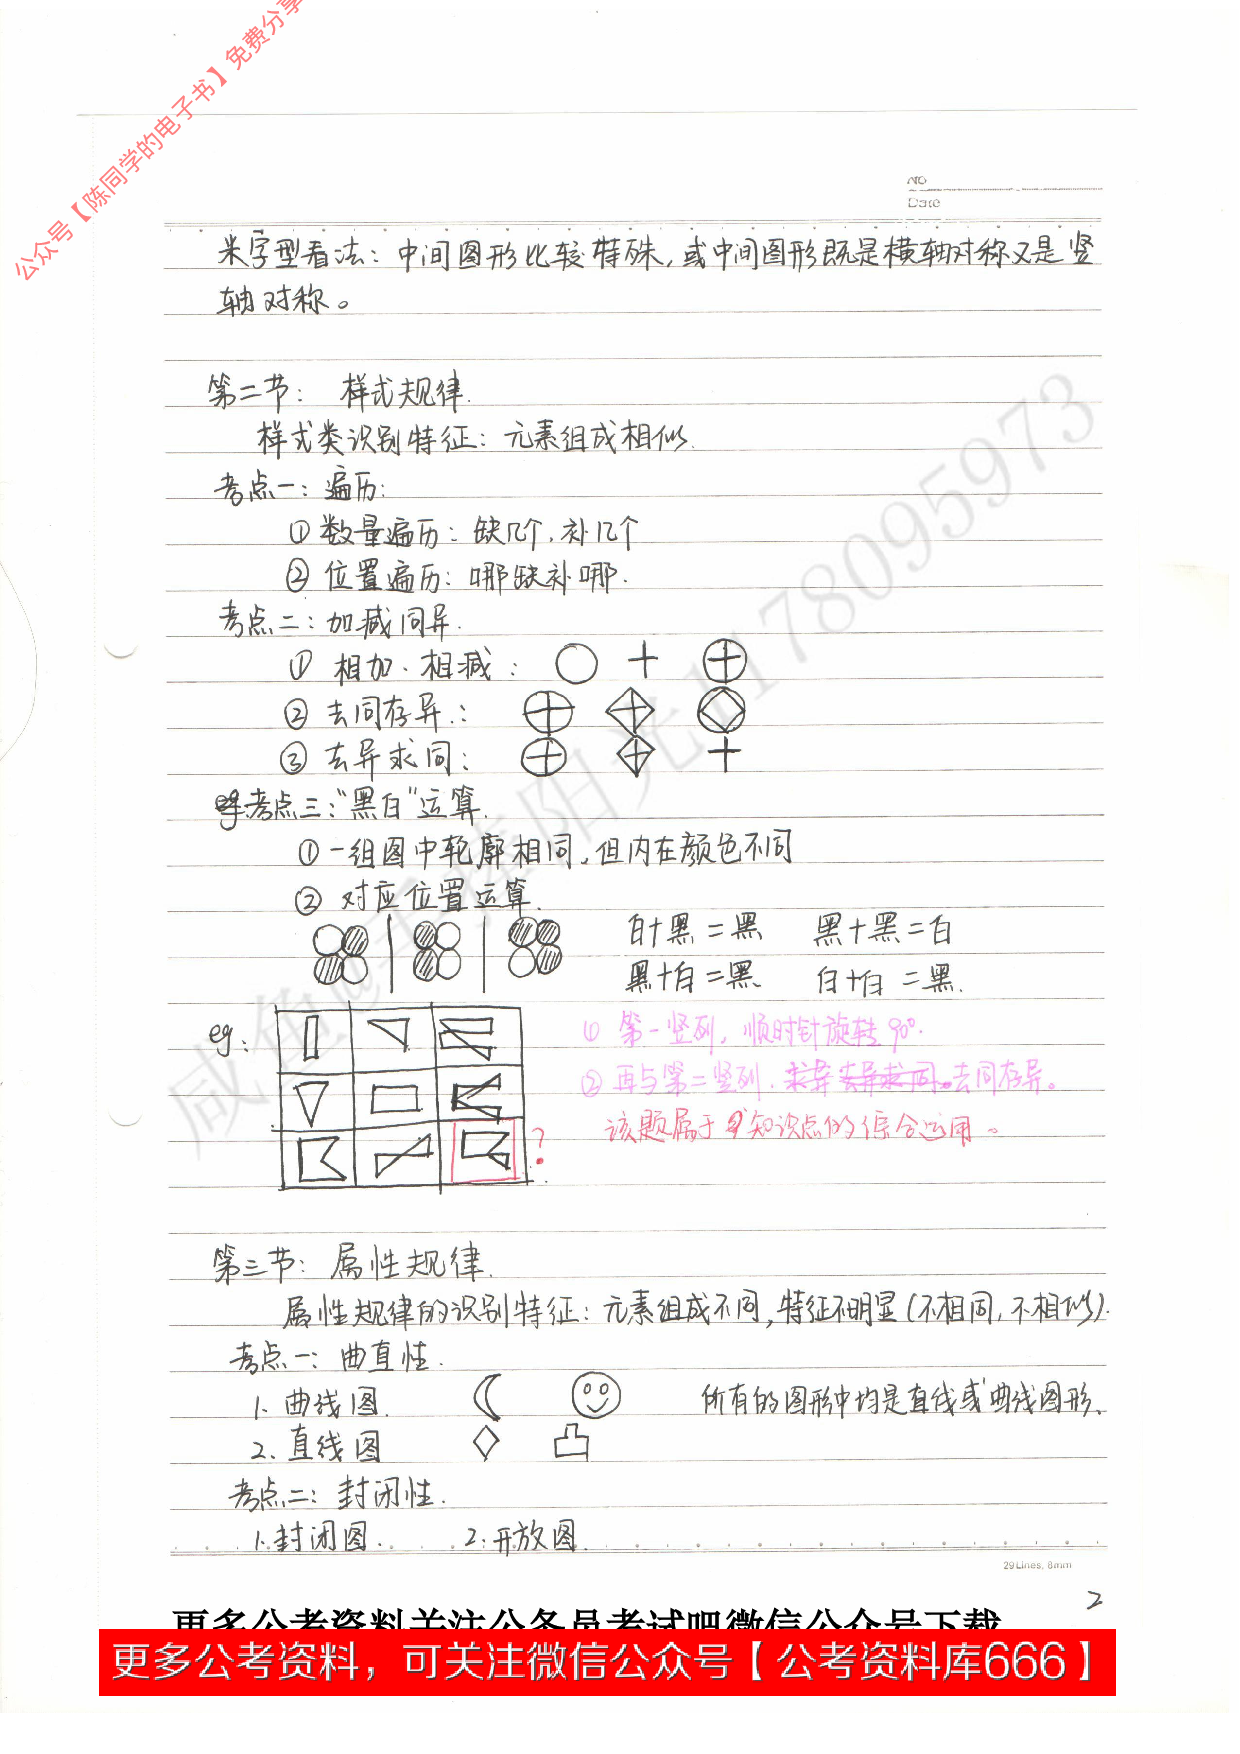 公众号【陈同学的电子书】免费分享
NO
Date
米字型看法：中间图形比较特殊，或中间图形既是横轴对称又是竖
轴对称。
第二节： 样式规律.
样式类识别特征：元素组成相似.
考点一：遍历：
① 数量遍历：缺几个，补几个
② 位置遍历：哪缺补哪.
考点二：加减同异.
① 相加、相减：
② 去同存异：
③ 去异求同：
考点三："黑白"运算.
① 一组图中轮廓相同，但内在颜色不同
② 对应位置运算.
白+黑=黑 黑+黑=白
黑+白=黑. 白+白=黑.
eg：
① 第一竖列，顺时针旋转90°.
② 再与第二竖列.求异去异求同。去同存异。
该题属于知识点的综合运用。
?
第三节：属性规律.
属性规律的识别特征：元素组成不同，特征不明显(不相同，不相似).
考点一：曲直性.
1、曲线图. 所有的图形中均是直线或曲线图形、
2、直线图
考点二：封闭性.
1、封闭图. 2、开放图.
29Lines, 8mm
2
更多公考资料关注公务员考试吧微信公众号下载
更多公考资料，可关注微信公众号【公考资料库666】
咸鱼@手捧阳光1178095973